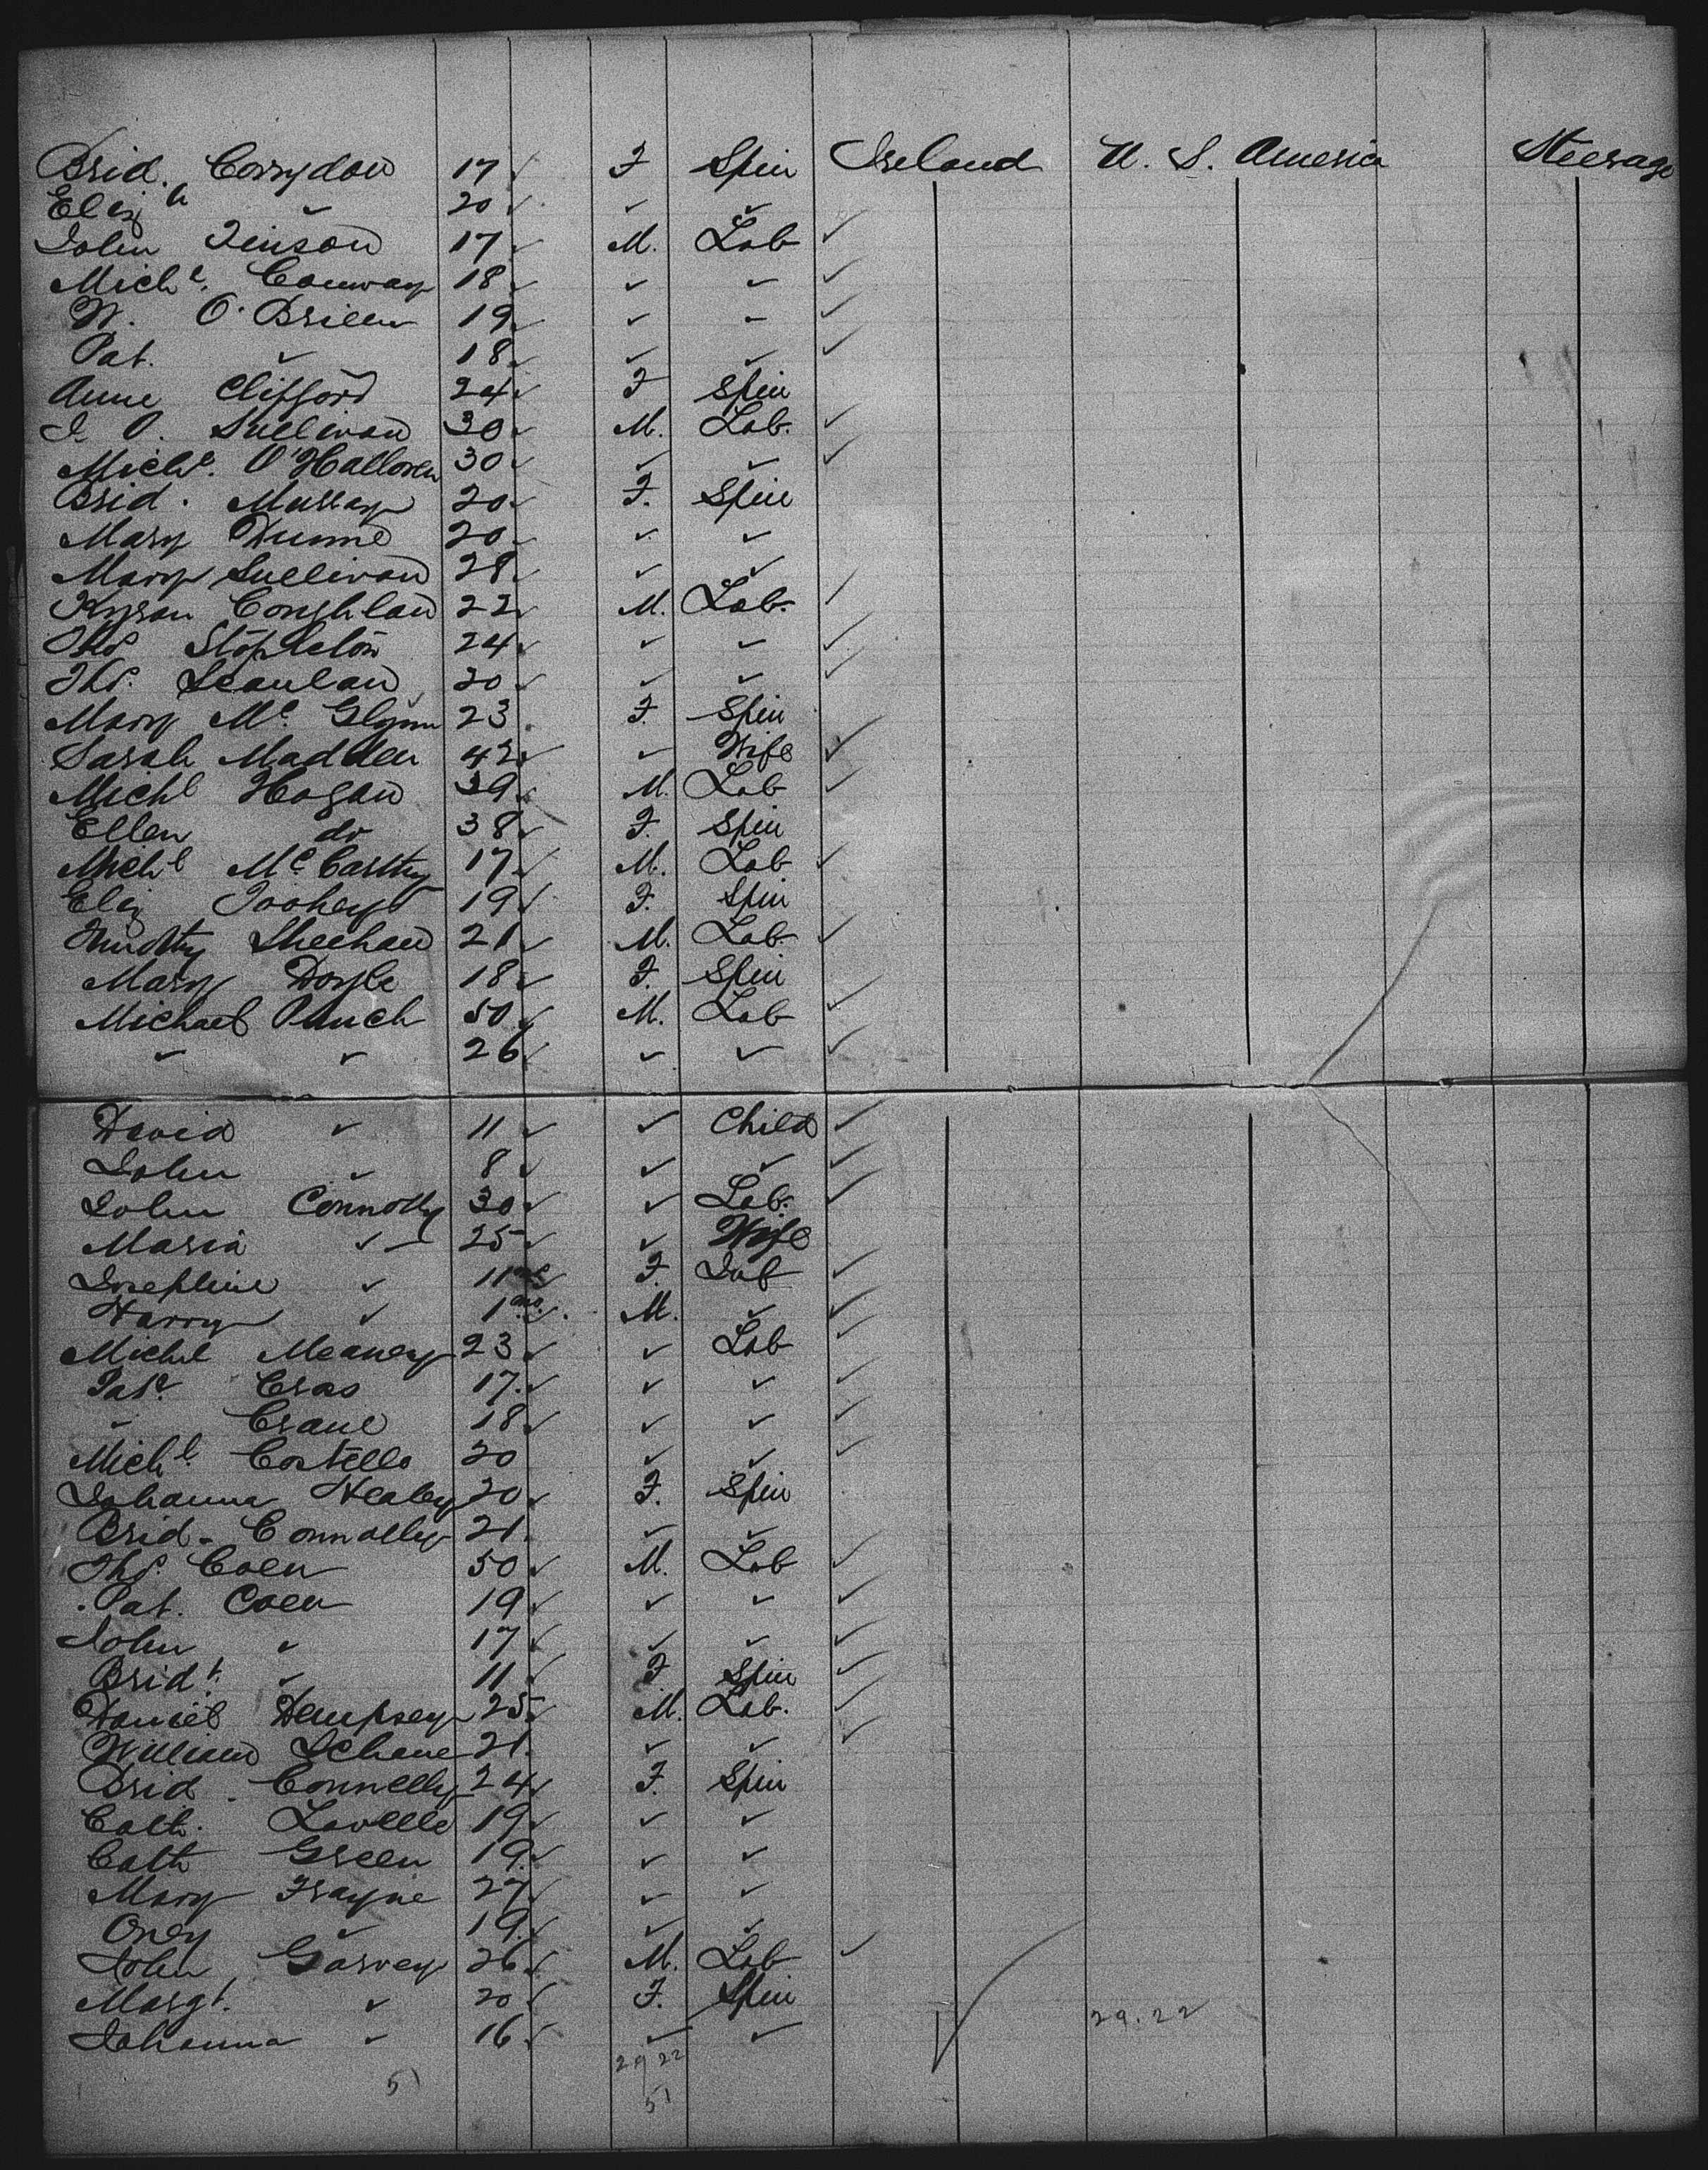 Brid. Corrydon 17 ✓ F Spin Ireland U. S. America Steerage
Eliz h ✓ 20 ✓ ✓ ✓
John Tinson 17 ✓ M. Lab ✓
Michl. Conway 18 ✓ ✓ ✓ ✓
W. O'Brien 19 ✓ ✓ ✓ ✓
Pat. ✓ 18 ✓ ✓ ✓ ✓
Anne Clifford 24 ✓ F Spin
J. O. Sullivan 30 ✓ M. Lab. ✓
Michl. O'Halloran 30 ✓ ✓ ✓ ✓
Brid. Murray 20 ✓ F. Spin
Mary Dunne 20 ✓ ✓ ✓
Mary Sullivan 28 ✓ ✓ ✓
Kyran Coughlan 22 ✓ M. Lab. ✓
Thos Stapleton 24 ✓ ✓ ✓ ✓
Thos. Scanlan 20 ✓ ✓ ✓ ✓
Mary Mc Glynn 23 F. Spin
Sarah Madden 42 ✓ ✓ Wife ✓
Michl Hogan 39 ✓ M. Lab ✓
Ellen do 38 ✓ F. Spin
Michl McCarthy 17 ✓ M. Lab ✓
Eliz Toohey 19 ✓ F. Spin
Timothy Sheehan 21 ✓ M. Lab. ✓
Mary Doyle 18 ✓ F. Spin
Michael Punch 50 ✓ M. Lab ✓
✓ ✓ 26 ✓ ✓ ✓ ✓
David ✓ 11 ✓ ✓ Child ✓
John ✓ 8 ✓ ✓ ✓ ✓
John Connolly 30 ✓ ✓ Lab. ✓
Maria ✓ 25 ✓ ✓ Wife
Josephine ✓ 11 mo ✓ F. Inf ✓
Harry ✓ 1 mo. ✓ M. ✓ ✓
Michl Meaney 23 ✓ ✓ Lab ✓
Pat. 17 ✓ ✓ ✓ ✓
✓ Crane 18 ✓ ✓ ✓ ✓
Michl. Costello 20 ✓ ✓ ✓
Johanna Healey 20 ✓ F. Spin
Brid. Connolly 21 ✓ ✓
Thos. Coen 50 ✓ M. Lab ✓
Pat. Coen 19 ✓ ✓ ✓ ✓
John ✓ 17 ✓ ✓ ✓ ✓
Bridt. ✓ 11 ✓ F Spin ✓
Daniel Dempsey 25 ✓ M. Lab. ✓
William 21 ✓ ✓ ✓
Brid. Connelly 24 ✓ F. Spin
Cath. Lavelle 19 ✓ ✓ ✓
Cath Green 19 ✓ ✓ ✓
Mary Frayne 27 ✓ ✓ ✓
Oney ✓ 19 ✓ ✓ ✓
John Garvey 26 ✓ M. Lab ✓
Margt. ✓ 20 ✓ F. Spin
Johanna ✓ 16 ✓ ✓ ✓ 29.22
29 22
51
51